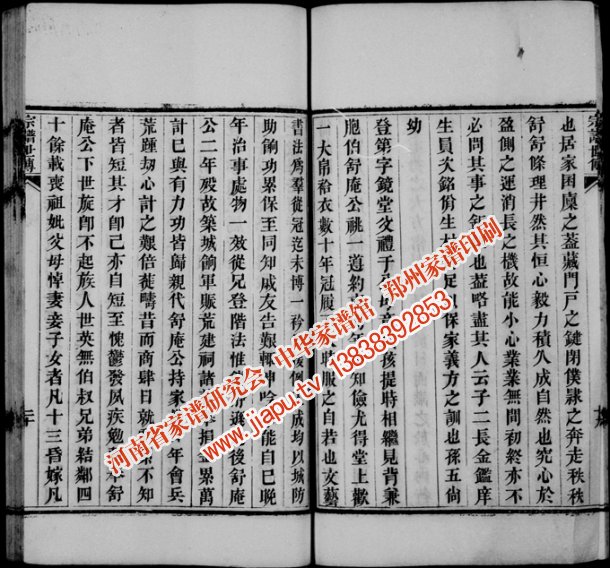 也居家困廩之葢藏門戸之鍵閉僕隷之奔走秩秩
舒舒條理井然其恒心毅力積久成自然也究心於
盈虧之運消長之機故能小心業業無間初終亦不
必問其事之 也葢畧盡其人云子二長金鑑庠
生員次銘份生 足 保家義方之訓也孫五尙
幼
登第字鏡堂文禮子 孩提時相繼見背兼
胞伯舒庵公祧一道約 知儉尤得堂上歡
一大帛袷衣數十年冠履 時服之自若也文藝
書法爲羣從冠迄未博一衿 後例 成均以城防
助餉功累保至同知戚友告艱輒 呻吟 能自已晚
年治事處物一效從兄登階法惟 分遜 後舒庵
公二年歿故築城餉軍賑荒建祠諸 率捐 累萬
計已與有力功皆歸親代舒庵公持家 年會兵
荒踵劫心計之艱倍蓰疇昔而商肆日就 不知
者皆短其才卽己亦自短至愧鬱發夙疾勉 卒舒
庵公下世族卽不起族人世英無伯叔兄弟結鄰四
十餘載喪祖妣父母悼妻妾子女者凡十三昏嫁凡
宗譜
二十
河南省家谱研究会 中华家谱馆 郑州家谱印刷
www.jiapu.tv 13838392853